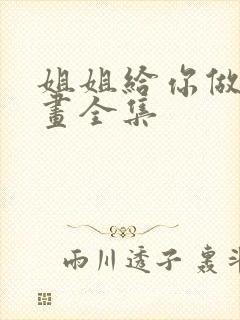 姐姐給你做
畫全集
雨川透子 裏